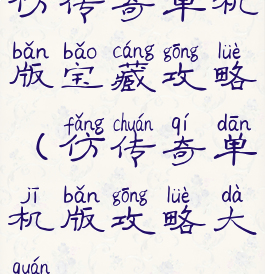 仿传奇单机
bǎn bǎo cáng gōng lüè
版宝藏攻略
fǎng chuán qí dān
（仿传奇单
jī bǎn gōng lüè dà
机版攻略大
quán